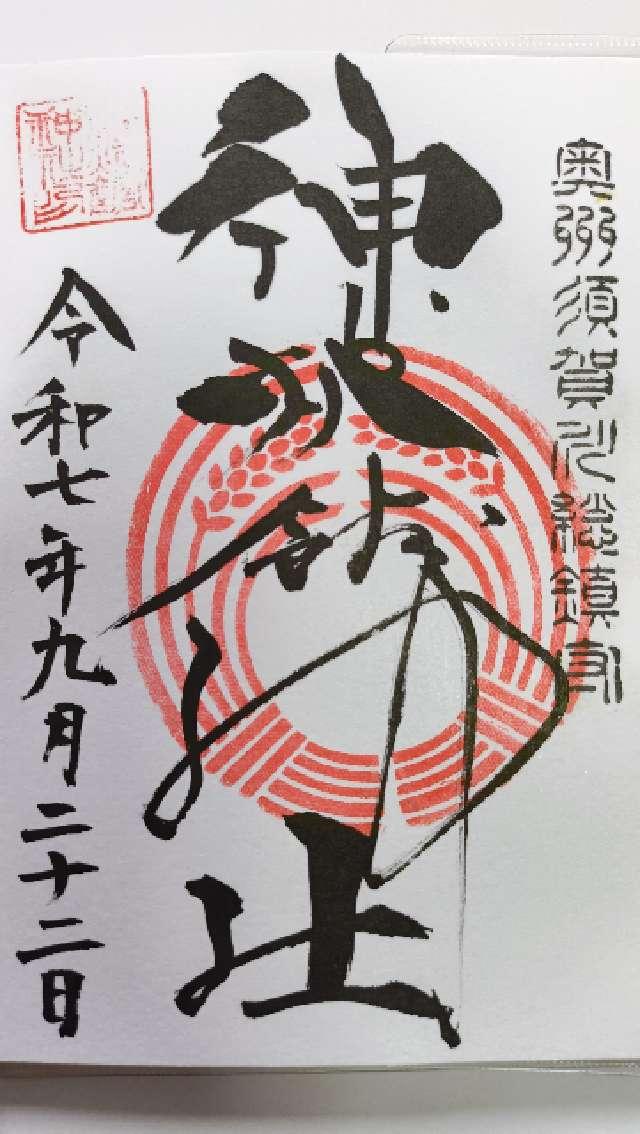 奥州須賀川総鎮守
神炊館神社
令和七年九月二十二日